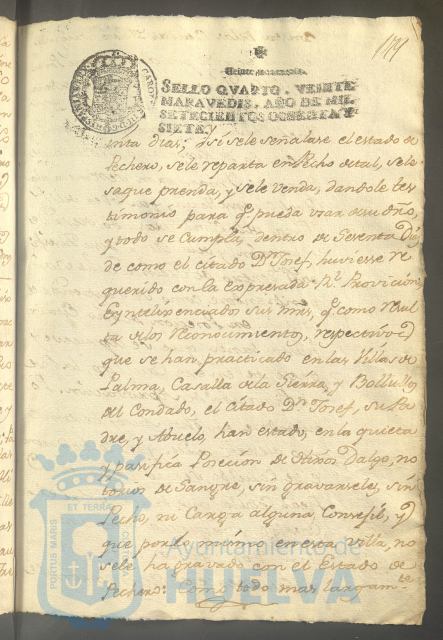 119
Veinte maravedis.
SELLO QVARTO, VEINTE
MARAVEDIS, AÑO DE MIL
SETECIENTOS OCHENTA Y
SIETE.
enta dias; Y si se le señalase el estado de
Pechero, se le reparta en Pecho de tal, se le
saque prenda, y se le venda, dandole tes
timonio para q.e pueda usar de su dño,
y todo se Cumpla, dentro de Sesenta Di
de como el citado D.n Josef, huviesse re
querido con la Expresada R.l Provicion,
q.e como Resul
ta de los Reconocimientos, respectivos
que se han practicado en las Villas de
Palma, Casalla de la Sierra, y Bollullos
del Condado, el Citado D.n Josef, su Pa
dre, y Abuelo, han estado, en la quieta
y pasifica Posecion de Hixos Dalgo, no
torios de Sangre, sin gravarsele, sin
Pecho, ni Carga alguna, Consegil, y
que por lo mismo en esta Villa, no
se le ha gravado con el Estado de
Pechero: Como todo mas largam.te
PORTUS MARIS ET TERRAE
Ayuntamiento de
HUELVA